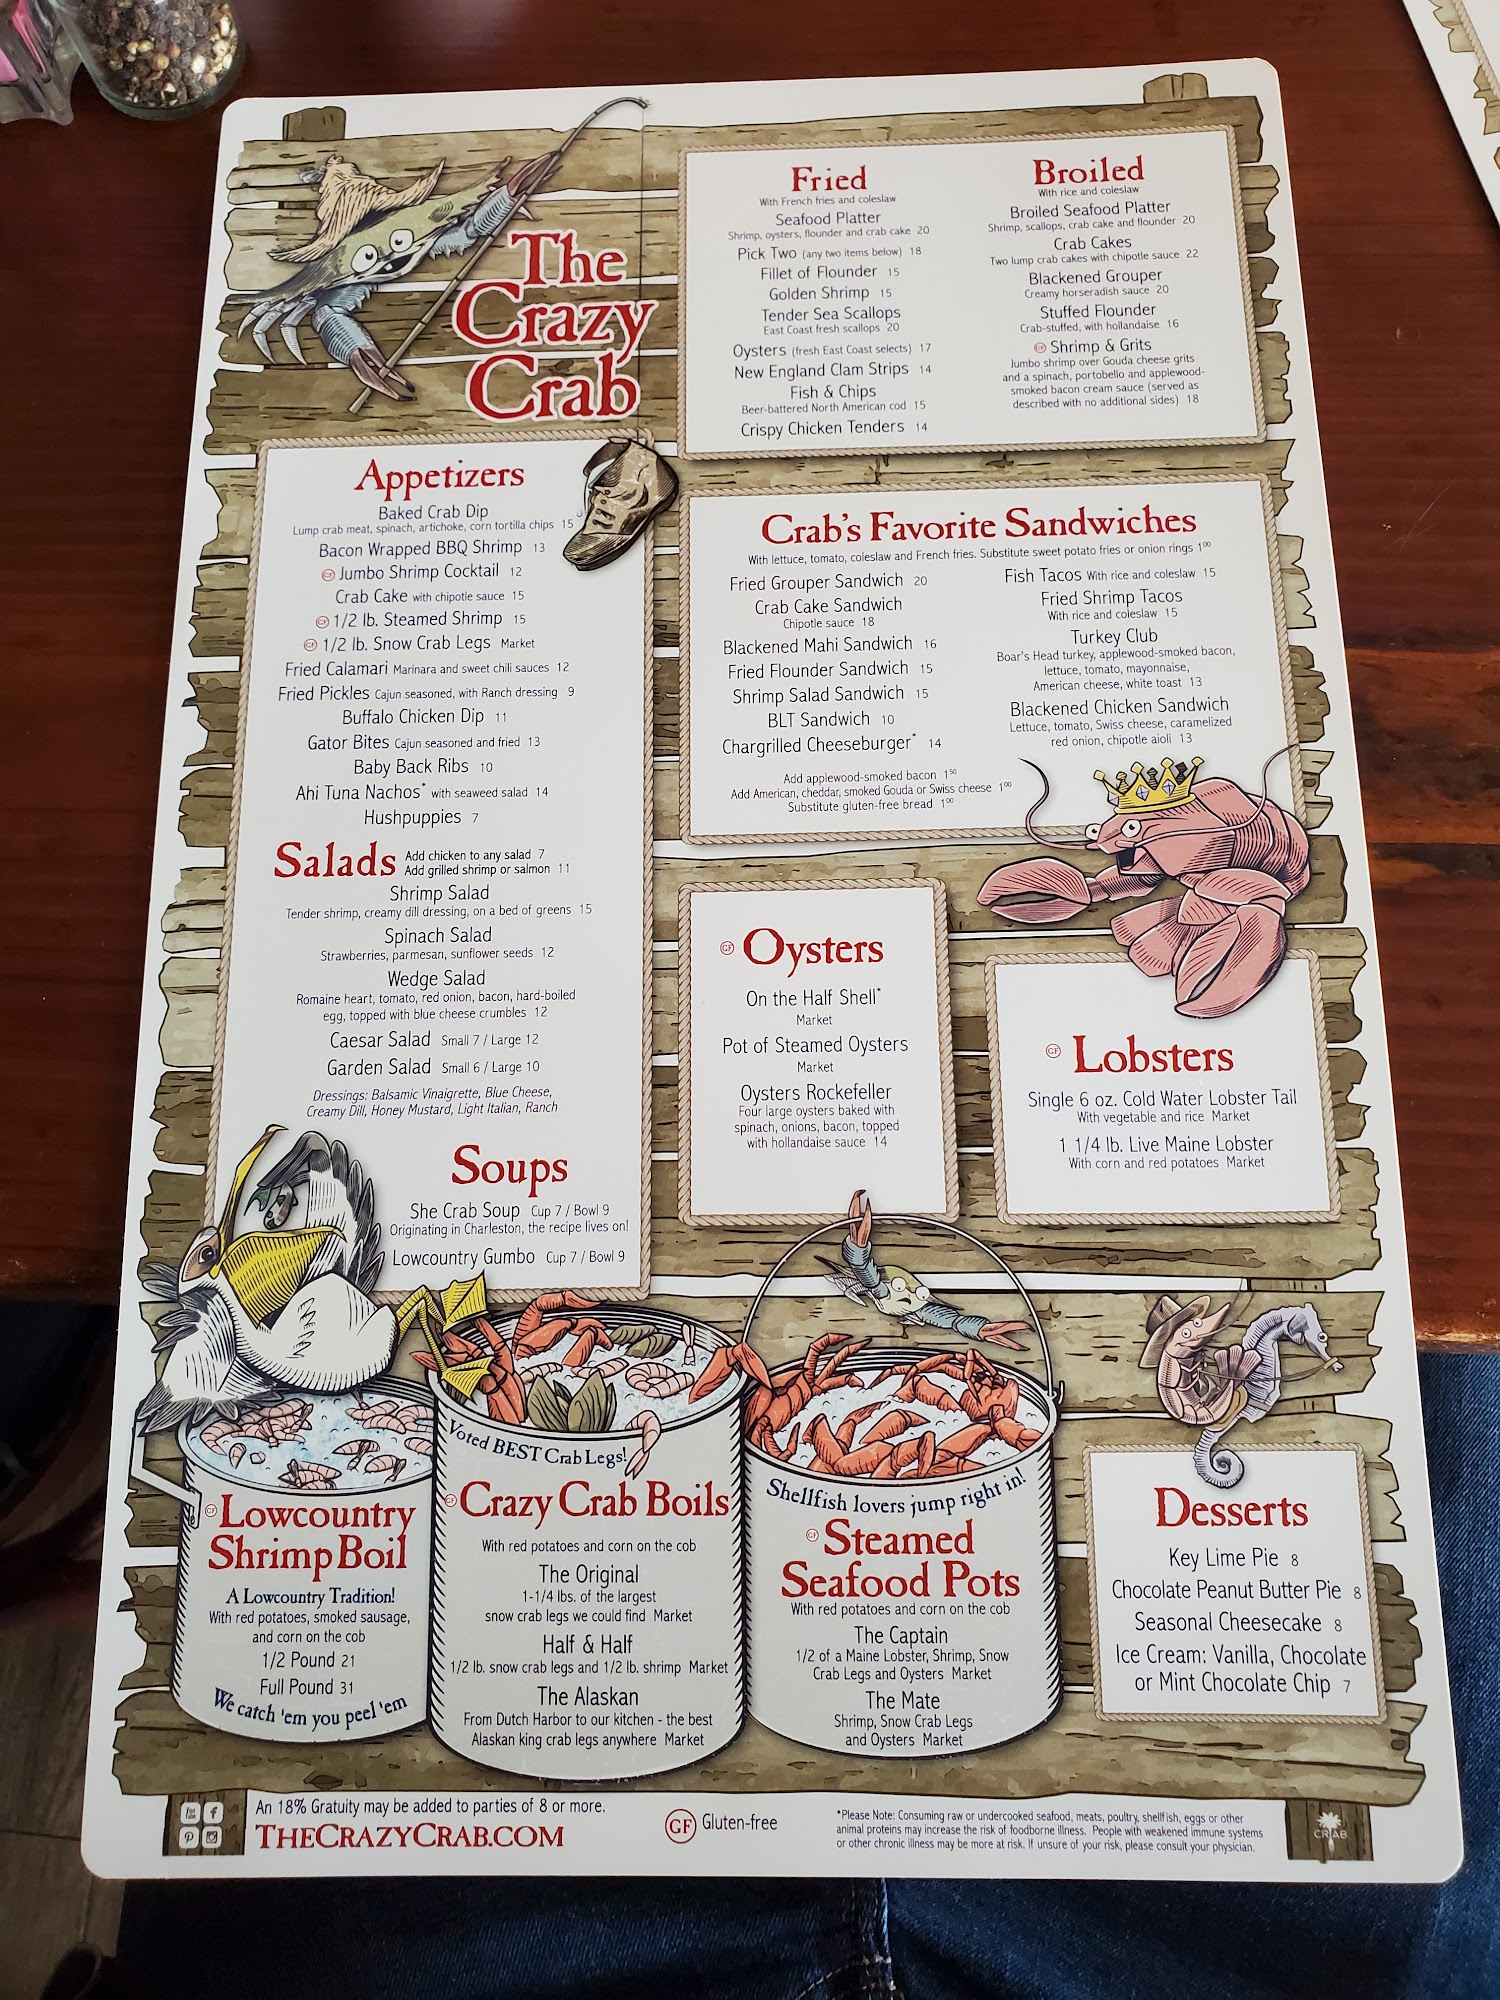 The
Crazy
Crab
Fried
With French fries and coleslaw
Seafood Platter
Shrimp, oysters, flounder and crab cake 20
Pick Two (any two items below) 18
Fillet of Flounder 15
Golden Shrimp 15
Tender Sea Scallops
East Coast fresh scallops 20
Oysters (fresh East Coast selects) 17
New England Clam Strips 14
Fish & Chips
Beer-battered North American cod 15
Crispy Chicken Tenders 14
Broiled
With rice and coleslaw
Broiled Seafood Platter
Shrimp, scallops, crab cake and flounder 20
Crab Cakes
Two lump crab cakes with chipotle sauce 22
Blackened Grouper
Creamy horseradish sauce 20
Stuffed Flounder
Crab-stuffed, with hollandaise 16
GF Shrimp & Grits
Jumbo shrimp over Gouda cheese grits
and a spinach, portobello and applewood-
smoked bacon cream sauce (served as
described with no additional sides) 18
Appetizers
Baked Crab Dip
Lump crab meat, spinach, artichoke, corn tortilla chips 15
Bacon Wrapped BBQ Shrimp 13
GF Jumbo Shrimp Cocktail 12
Crab Cake with chipotle sauce 15
GF 1/2 lb. Steamed Shrimp 15
GF 1/2 lb. Snow Crab Legs Market
Fried Calamari Marinara and sweet chili sauces 12
Fried Pickles Cajun seasoned, with Ranch dressing 9
Buffalo Chicken Dip 11
Gator Bites Cajun seasoned and fried 13
Baby Back Ribs 10
Ahi Tuna Nachos* with seaweed salad 14
Hushpuppies 7
Salads Add chicken to any salad 7
Add grilled shrimp or salmon 11
Shrimp Salad
Tender shrimp, creamy dill dressing, on a bed of greens 15
Spinach Salad
Strawberries, parmesan, sunflower seeds 12
Wedge Salad
Romaine heart, tomato, red onion, bacon, hard-boiled
egg, topped with blue cheese crumbles 12
Caesar Salad Small 7 / Large 12
Garden Salad Small 6 / Large 10
Dressings: Balsamic Vinaigrette, Blue Cheese,
Creamy Dill, Honey Mustard, Light Italian, Ranch
Soups
She Crab Soup Cup 7 / Bowl 9
Originating in Charleston, the recipe lives on!
Lowcountry Gumbo Cup 7 / Bowl 9
Crab's Favorite Sandwiches
With lettuce, tomato, coleslaw and French fries. Substitute sweet potato fries or onion rings 1.00
Fried Grouper Sandwich 20
Crab Cake Sandwich
Chipotle sauce 18
Blackened Mahi Sandwich 16
Fried Flounder Sandwich 15
Shrimp Salad Sandwich 15
BLT Sandwich 10
Chargrilled Cheeseburger* 14
Fish Tacos With rice and coleslaw 15
Fried Shrimp Tacos
With rice and coleslaw 15
Turkey Club
Boar's Head turkey, applewood-smoked bacon,
lettuce, tomato, mayonnaise,
American cheese, white toast 13
Blackened Chicken Sandwich
Lettuce, tomato, Swiss cheese, caramelized
red onion, chipotle aioli 13
Add applewood-smoked bacon 1⁵⁰
Add American, cheddar, smoked Gouda or Swiss cheese 1⁰⁰
Substitute gluten-free bread 1⁰⁰
GF Oysters
On the Half Shell*
Market
Pot of Steamed Oysters
Market
Oysters Rockefeller
Four large oysters baked with
spinach, onions, bacon, topped
with hollandaise sauce 14
GF Lobsters
Single 6 oz. Cold Water Lobster Tail
With vegetable and rice Market
1 1/4 lb. Live Maine Lobster
With corn and red potatoes Market
GF Lowcountry
Shrimp Boil
A Lowcountry Tradition!
With red potatoes, smoked sausage,
and corn on the cob
1/2 Pound 21
Full Pound 31
We catch 'em you peel 'em
Voted BEST Crab Legs!
GF Crazy Crab Boils
With red potatoes and corn on the cob
The Original
1-1/4 lbs. of the largest
snow crab legs we could find Market
Half & Half
1/2 lb. snow crab legs and 1/2 lb. shrimp Market
The Alaskan
From Dutch Harbor to our kitchen - the best
Alaskan king crab legs anywhere Market
Shellfish lovers jump right in!
GF Steamed
Seafood Pots
With red potatoes and corn on the cob
The Captain
1/2 of a Maine Lobster, Shrimp, Snow
Crab Legs and Oysters Market
The Mate
Shrimp, Snow Crab Legs
and Oysters Market
Desserts
Key Lime Pie 8
Chocolate Peanut Butter Pie 8
Seasonal Cheesecake 8
Ice Cream: Vanilla, Chocolate
or Mint Chocolate Chip 7
An 18% Gratuity may be added to parties of 8 or more.
THECRAZYCRAB.COM
GF Gluten-free
*Please Note: Consuming raw or undercooked seafood, meats, poultry, shellfish, eggs or other
animal proteins may increase the risk of foodborne illness. People with weakened immune systems
or other chronic illness may be more at risk. If unsure of your risk, please consult your physician.
CRAB